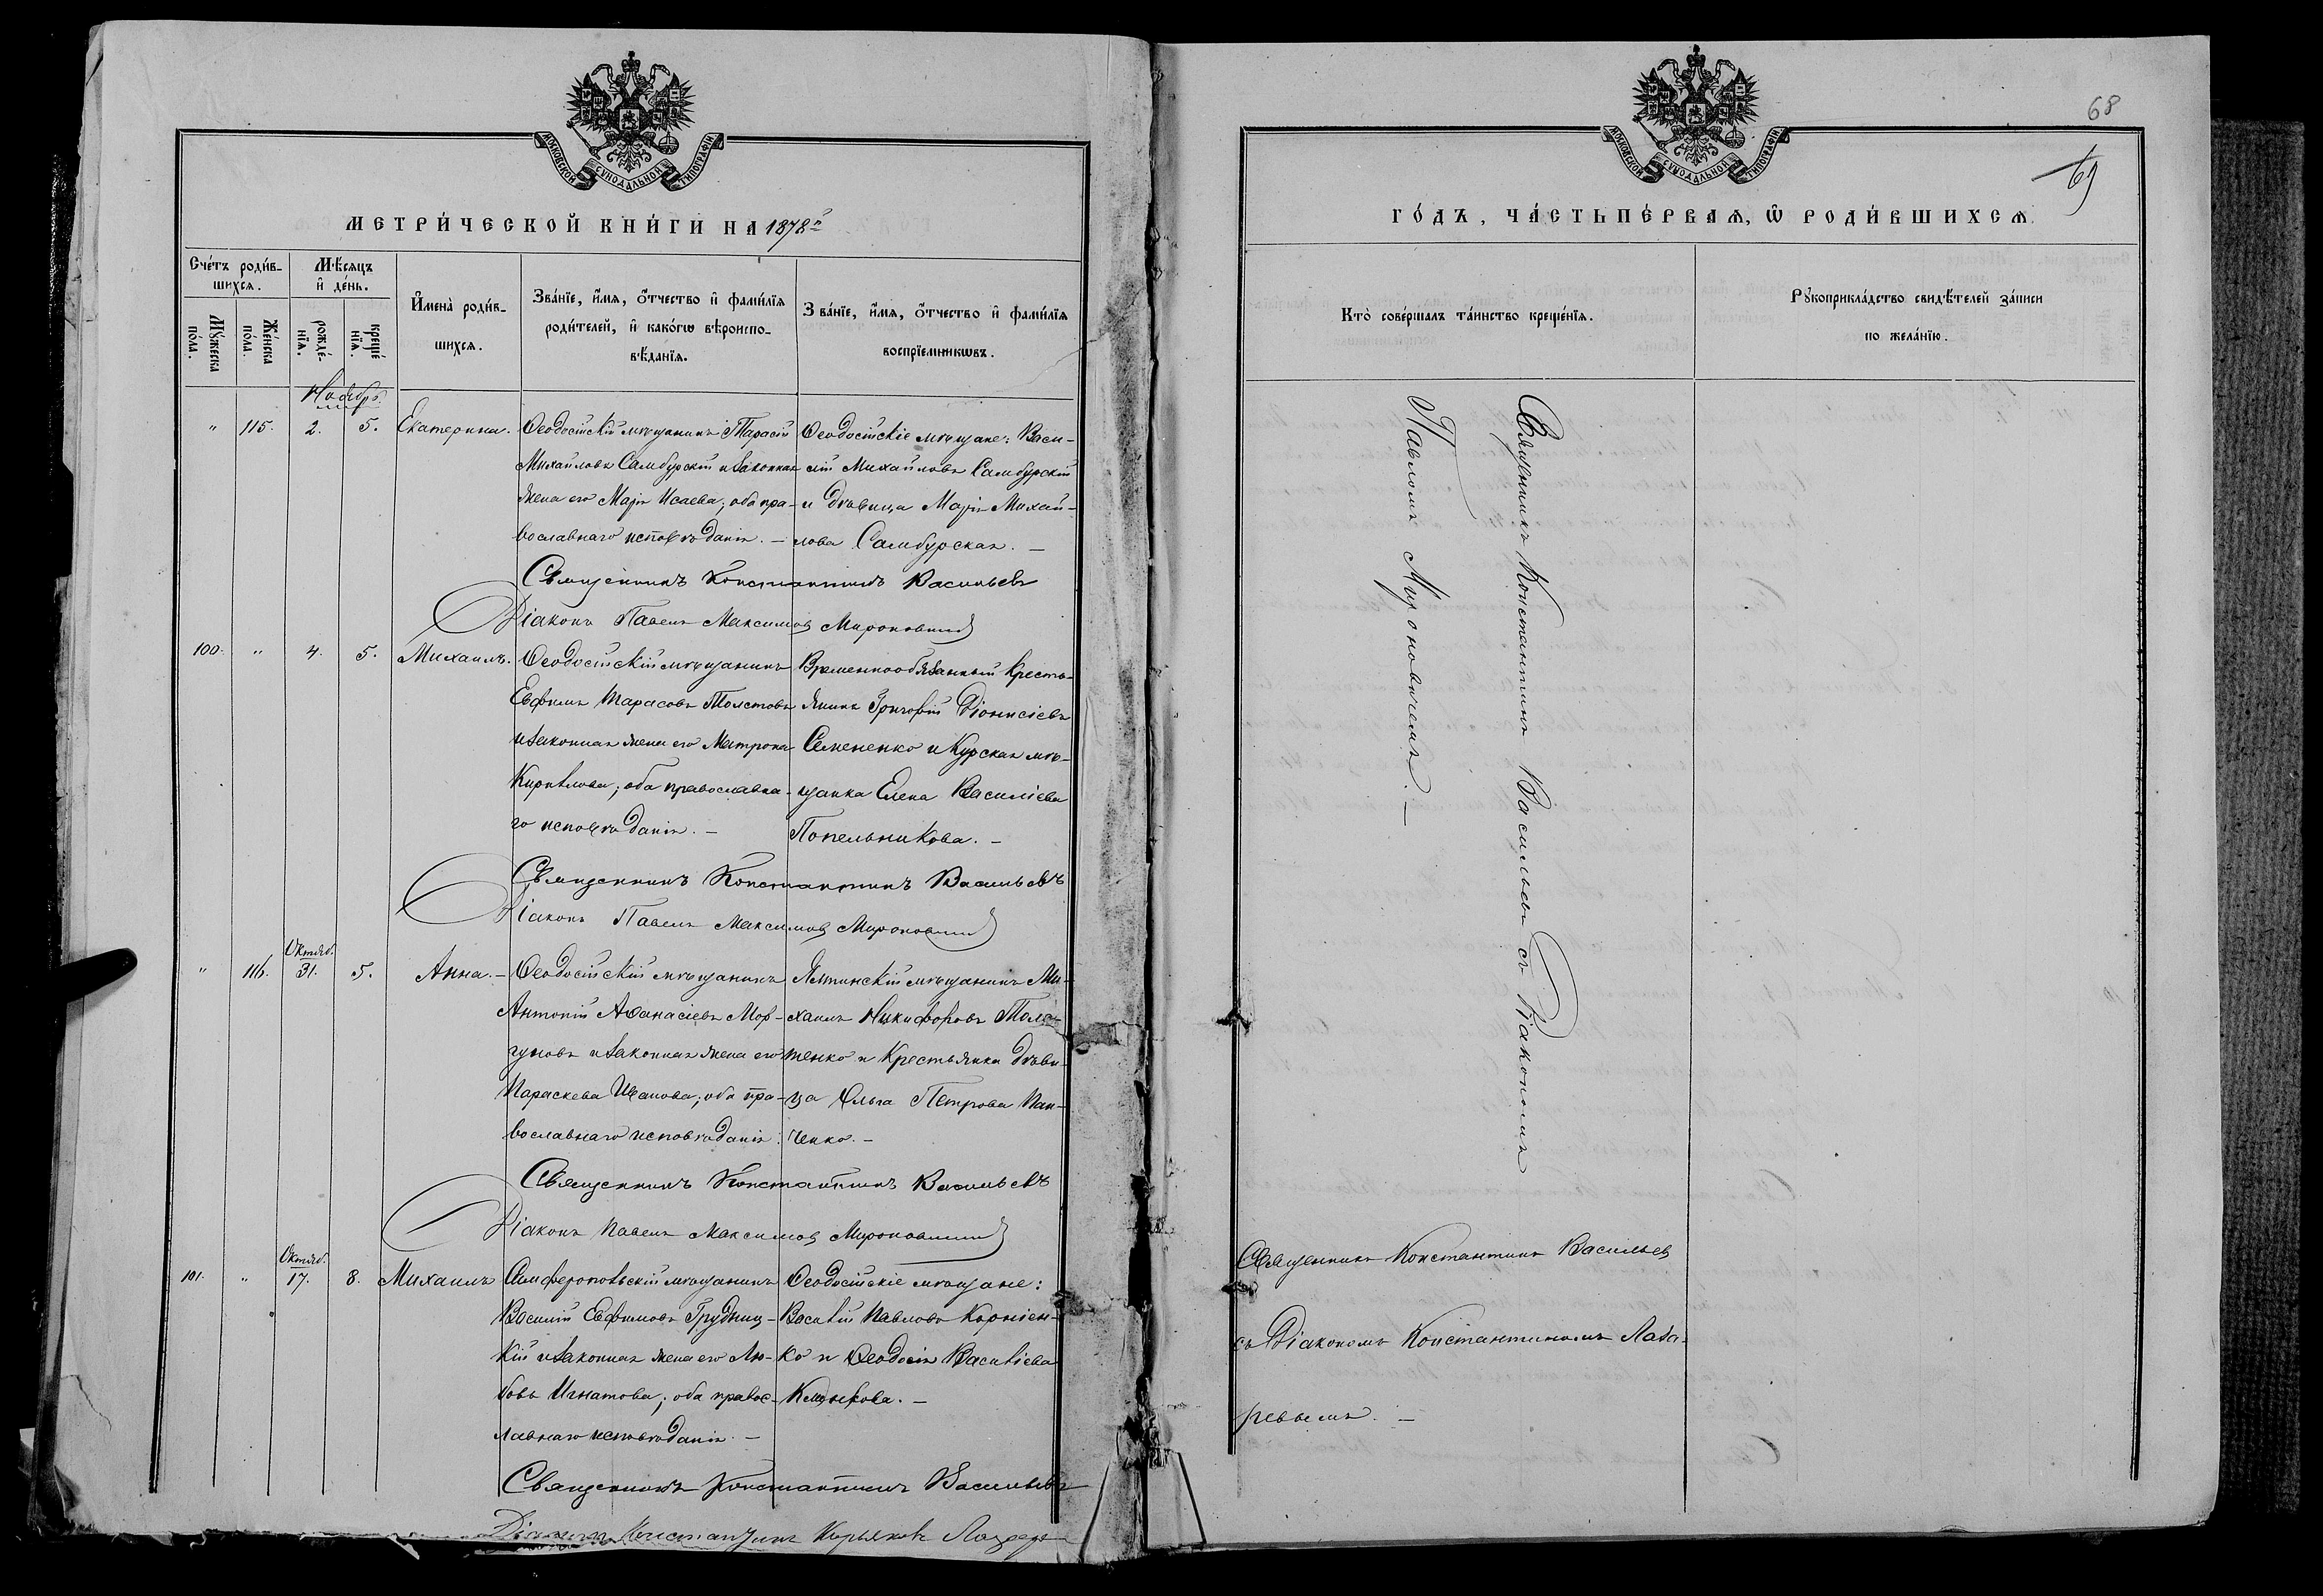 МОСКОВСКОЙ СѴНОДАЛЬНОЙ ТИПОГРАФІИ
МЕТРИ́ЧЕСКОЙ КНИ́ГИ НА 1878й
Сче́тъ роди́в-
шихся.
Мѣ́сяцъ
и҆ де́нь.
И҆мена̀ роди́в-
шихся.
Зва́нїе, и҆́мя, ѻ҆́тчество и҆ фами́лїя
роди́телей, и҆ како́гѡ вѣроиспо-
вѣ́данїя.
Зва́нїе, и҆́мя, ѻ҆́тчество и҆ фами́лїя
воспрїе́мникѡвъ.
Мꙋ́жеска по́ла.
Же́нска по́ла.
рожде́-нїя.
креще́нїя.
Ноябрь.
" 115. 2. 5. Екатерина.
Ѳеодосійскій мѣщанинъ Тарасій
Михайловъ Самбурскій и законная
жена его Марія Исаева; оба пра-
вославнаго исповѣданія. —
Ѳеодосійскіе мѣщане: Васи-
лій Михайловъ Самбурскій
и дѣвица Марія Михай-
лова Самбурская. —
Священникъ Константинъ Васильевъ
Діаконъ Павелъ Максимов Мироновичъ
100. " 4. 5. Михаилъ.
Ѳеодосійскій мѣщанинъ
Евфимъ Тарасовъ Толстовъ
и законная жена его Матрона
Кириллова; оба православна-
го исповѣданія. —
Временнообязанный кресть-
янинъ Григорій Діонисіевъ
Семененко и Курская мѣ-
щанка Елена Василіева
Попельникова. —
Священникъ Константинъ Васильевъ
Діаконъ Павелъ Максимов Мироновичъ
Октяб.
" 116. 31. 5. Анна. —
Ѳеодосійскій мѣщанинъ
Антоній Аѳанасіевъ Мор-
гуновъ и законная жена его
Параскева Иванова; оба пра-
вославнаго исповѣданія.
Ялтинскій мѣщанинъ Ми-
хаилъ Никифоровъ Толс-
тенко и крестьянка дѣви-
ца Ольга Петрова Пан-
ченко. —
Священникъ Константинъ Васильевъ
Діаконъ Павелъ Максимов Мироновичъ
Октяб.
101. " 17. 8. Михаилъ
Симферопольскій мѣщанинъ
Василій Евфимовъ Грудниц-
кій и законная жена его Лю-
бовь Игнатова; оба правос-
лавнаго исповѣданія. —
Ѳеодосійскіе мѣщане:
Василій Павловъ Корніен-
ко и Ѳеодосія Василіева
Священникъ Константинъ Васильевъ
Константинъ
МОСКОВСКОЙ СѴНОДАЛЬНОЙ ТИПОГРАФІИ
68
69
ГО́ДЪ, ЧА́СТЬ ПЕ́РВАЯ, Ѡ҆ РОДИ́ВШИХСЯ.
Кто̀ соверша́лъ та́инство креще́нїя.
Рꙋкоприкла́дство свидѣ́телей за́писи
по жела́нїю.
Священникъ Константинъ Васильевъ съ Діакономъ
Павломъ Мироновичемъ. —
Священникъ Константинъ Васильев
съ Діакономъ Константиномъ Лаза-
ревымъ. —